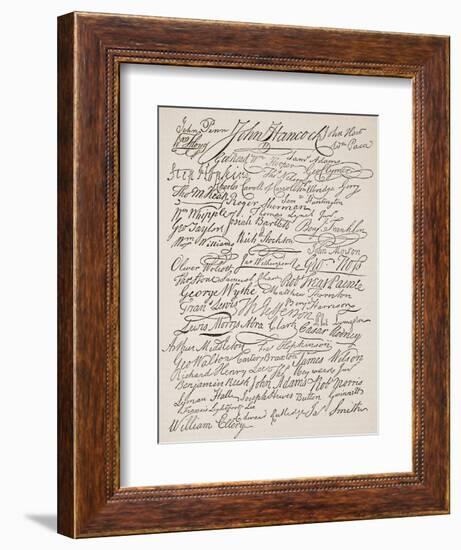 John Penn John Hancock John Hart
Wm Floyd Wm Paca
Geo Read Wm Hooper Sam Adams
Step Hopkins Thos Nelson Geo Clymer
Charles Carroll of Carrollton Elbridge Gerry
Tho M Kean Roger Sherman Sam Huntington
Wm Whipple Thomas Lynch Junr
Geo Taylor Josiah Bartlett Benj Franklin
Wm Williams Richd Stockton
John Morton
Oliver Wolcott Jno Witherspoon Geo Ross
Thos Stone Samuel Chase Robt Treat Paine
George Wythe Matthew Thornton
Frans Lewis Th Jefferson Benj Harrison
Lewis Morris Abra Clark Caesar Rodney
Arthur Middleton Fras Hopkinson
Geo Walton Carter Braxton James Wilson
Richard Henry Lee Thos Heyward Junr
Benjamin Rush John Adams Robt Morris
Lyman Hall Joseph Hewes Button Gwinnett
Francis Lightfoot Lee
William Ellery Edward Rutledge Jas Smith